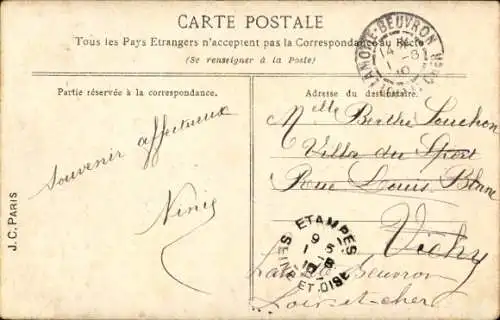 CARTE POSTALE
Tous les Pays Etrangers n'acceptent pas la Correspondance au Recto
(Se renseigner à la Poste)
Partie réservée à la correspondance.
Souvenir affectueux
Ninis
J. C. PARIS
Adresse du destinataire.
Melle Berthe Souchon
Villa du Sport
Rue Louis Blanc
Vichy
Lamotte Beuvron
Loir-et-cher
LAMOTTE-BEUVRON
ETAMPES
SEINE ET OISE